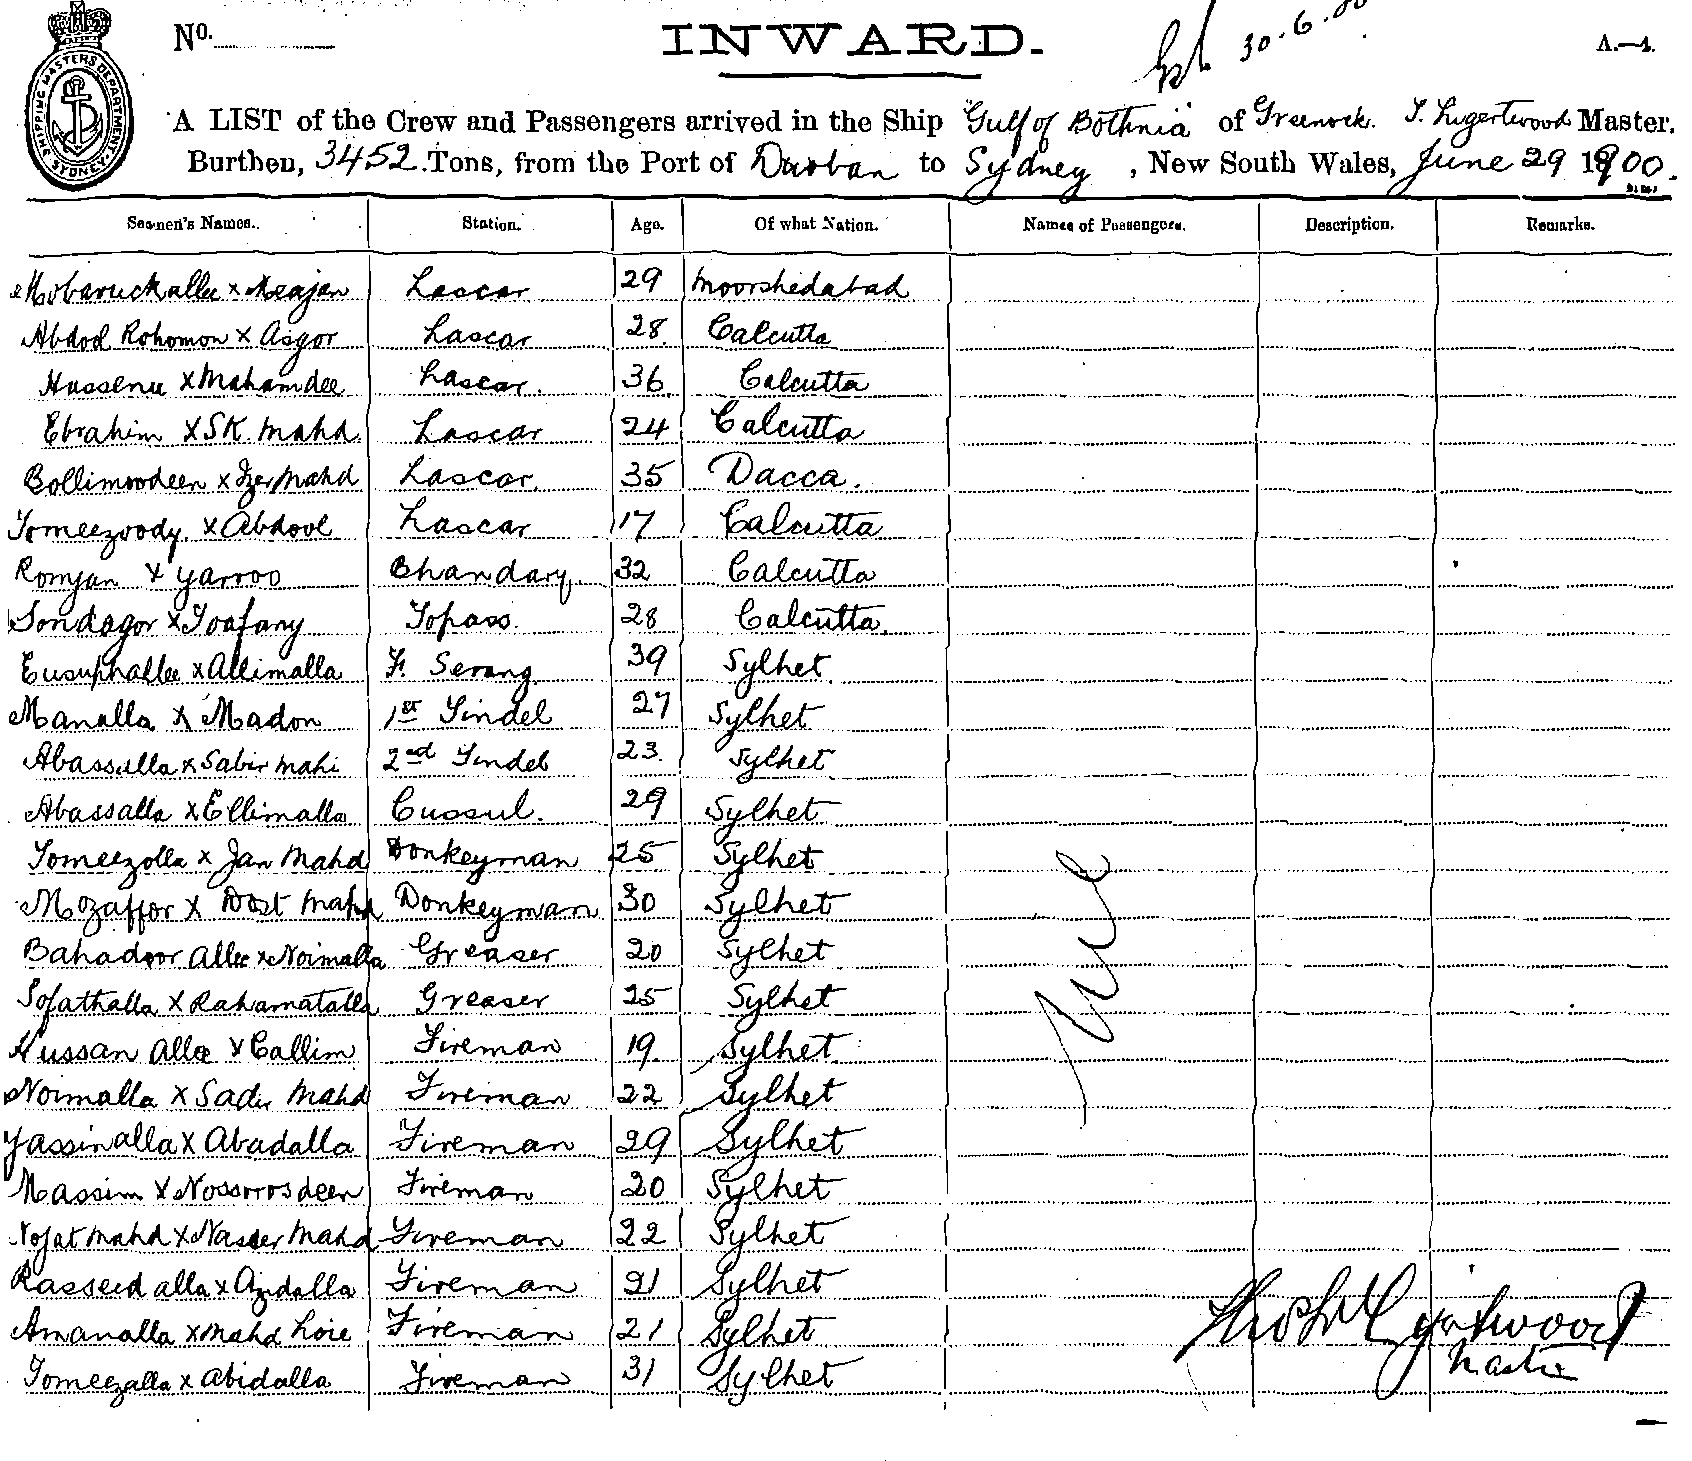 No. INWARD. 30.6.00 A.—4.
SHIPPING MASTERS DEPARTMENT SYDNEY
A LIST of the Crew and Passengers arrived in the Ship Gulf of Bothnia of Greenock. T. Ligertwood Master,
Burthen, 3452 Tons, from the Port of Durban to Sydney, New South Wales, June 29 1900.
Seamen's Names. Station. Age. Of what Nation. Names of Passengers. Description. Remarks.
Mobaruckallee x Meajan Lascar 29 Moorshedabad
Abdool Rohomon x Asgor Lascar 28 Calcutta
Hussenu x Mahamdee Lascar. 36 Calcutta
Ebrahim x SK. Mahd. Lascar 24 Calcutta
Bollimoodeen x Izer Mahd Lascar. 35 Dacca.
Tomeezoody. x Abdool Lascar 17 Calcutta
Romjan x Yarroo Bhandary. 32 Calcutta
Sondagor x Toofany Topass. 28 Calcutta.
Eusuphallee x Allimalla F. Serang. 39 Sylhet.
Manalla x Madon 1st Tindel 27 Sylhet
Abassalla x Sabir Mahi 2nd Tindel 23. Sylhet.
Abassalla x Ellimalla Cussul. 29 Sylhet
Tomeezolla x Jan Mahd Donkeyman 25 Sylhet
Mozaffor x Dost Mahd Donkeyman 30 Sylhet
Bahadoor Allee x Noimalla Greaser 20 Sylhet
Sofathalla x Rahamatalla Greaser 25 Sylhet
Hussan Alle x Callim Fireman 19 Sylhet.
Noimalla x Sadu Mahd Fireman 22 Sylhet
Yassinalla x Abadalla Fireman 29 Sylhet
Massim x Nossoroodeen Fireman 20 Sylhet
Nofat Mahd x Nasser Mahd Fireman 22 Sylhet
Rasseed alla x Azidalla Fireman 21 Sylhet
Amanalla x Mahd Loie Fireman 21 Sylhet
Tomeezalla x Abidalla Fireman 31 Sylhet
Thos. Ligertwood
Master